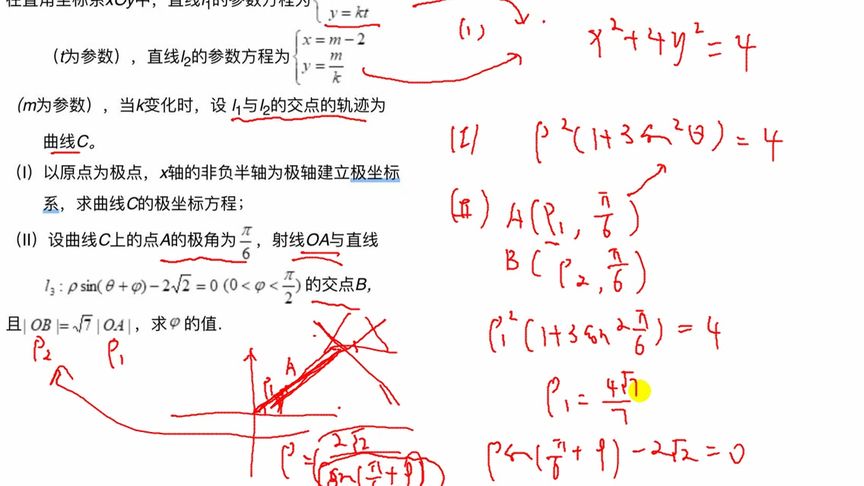 在直角坐标系xOy中，直线l₁的参数方程为{ y = kt
（t为参数），直线l₂的参数方程为{ x = m − 2
y = m/k
（m为参数），当k变化时，设 l₁与l₂的交点的轨迹为
曲线C。
（I）以原点为极点，x轴的非负半轴为极轴建立极坐标
系，求曲线C的极坐标方程；
（II）设曲线C上的点A的极角为 π/6 ，射线OA与直线
l₃ : ρ sin( θ + φ) − 2√2 = 0 (0 < φ < π/2) 的交点B，
且| OB |= √7 | OA |，求 φ 的值.
ρ₂ ρ₁
A
ρ₁
ρ = 2√2 / sin(π/6 + φ)
(1)
x² + 4y² = 4
(I) ρ²(1+3sin²θ) = 4
(II) A(ρ₁, π/6)
B(ρ₂, π/6)
ρ₁²(1+3sin²π/6) = 4
ρ₁ = 4√7/7
ρsin(π/6 + φ) − 2√2 = 0